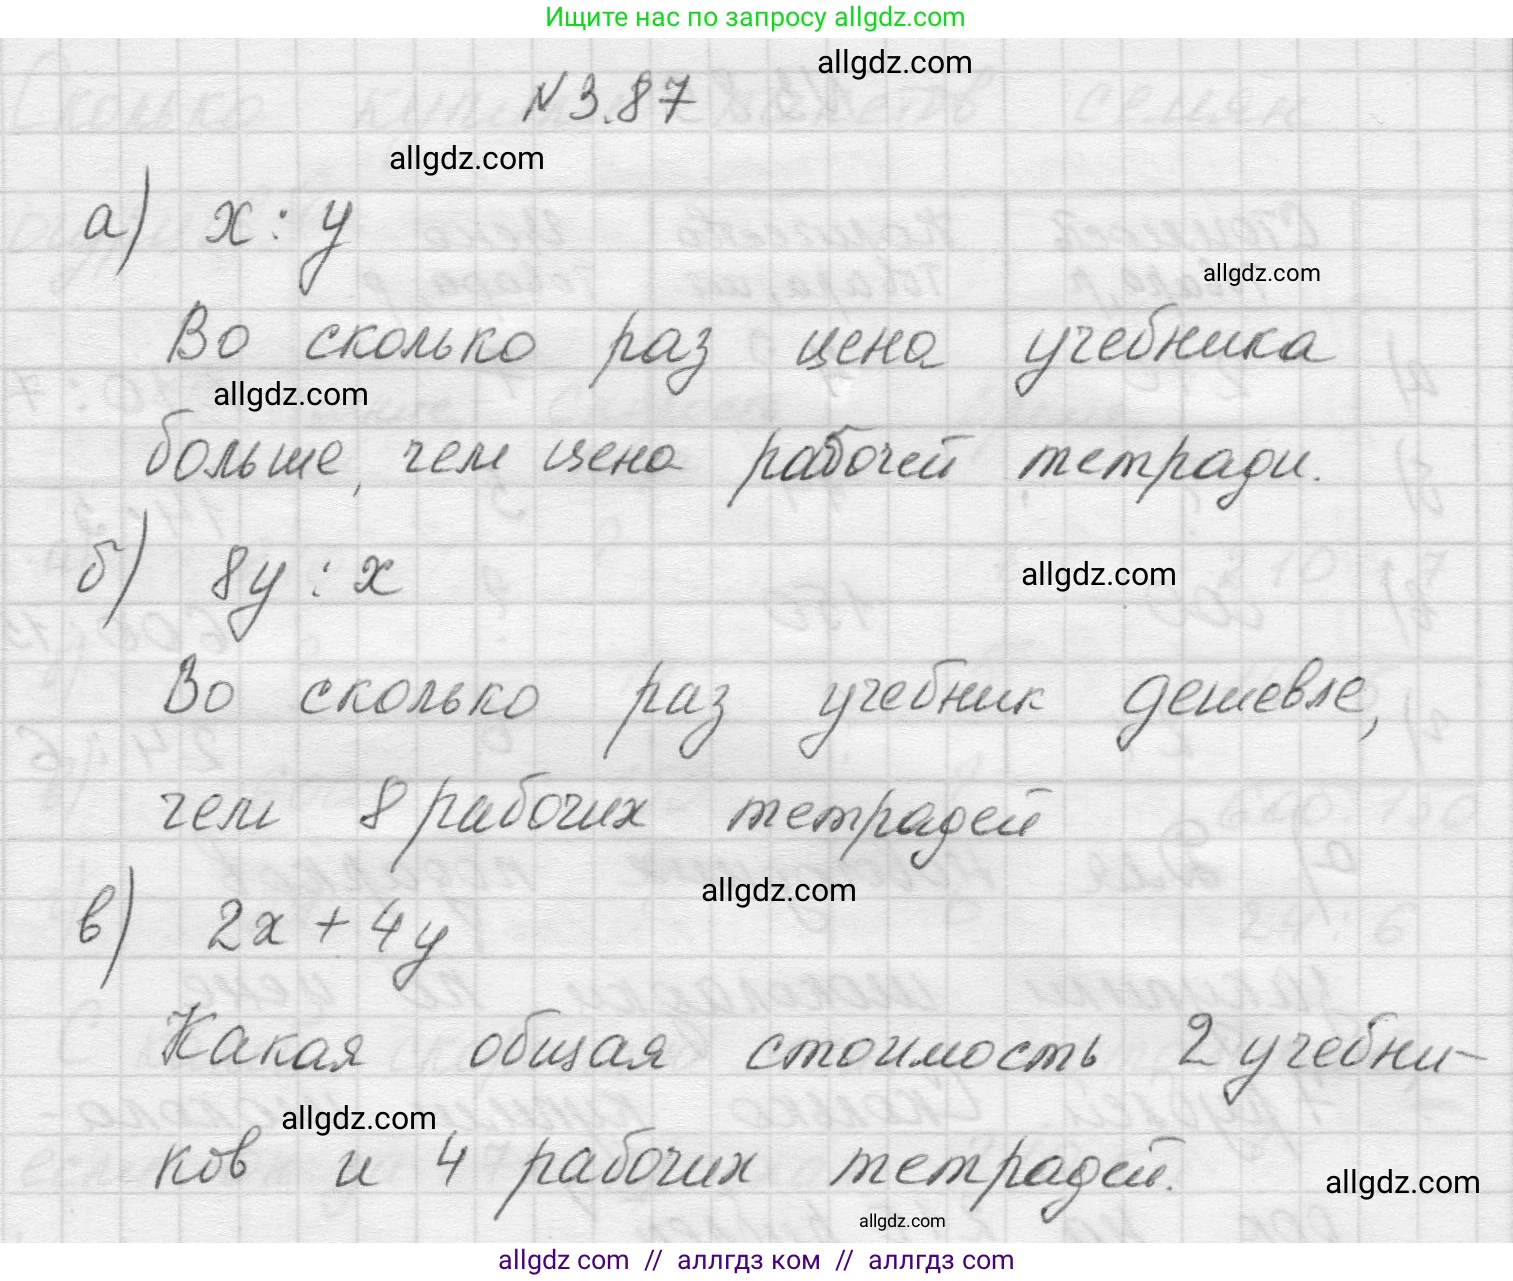 Ищите нас по запросу allgdz.com
allgdz.com
№ 3.87
allgdz.com
а) x : y
allgdz.com
Во сколько раз цена учебника
allgdz.com
больше, чем цена рабочей тетради.
б) 8y : x
allgdz.com
Во сколько раз учебник дешевле,
чем 8 рабочих тетрадей
allgdz.com
в) 2x + 4y
Какая общая стоимость 2 учебни-
allgdz.com
ков и 4 рабочих тетрадей.
allgdz.com
allgdz.com
allgdz com // аллгдз ком // аллгдз com